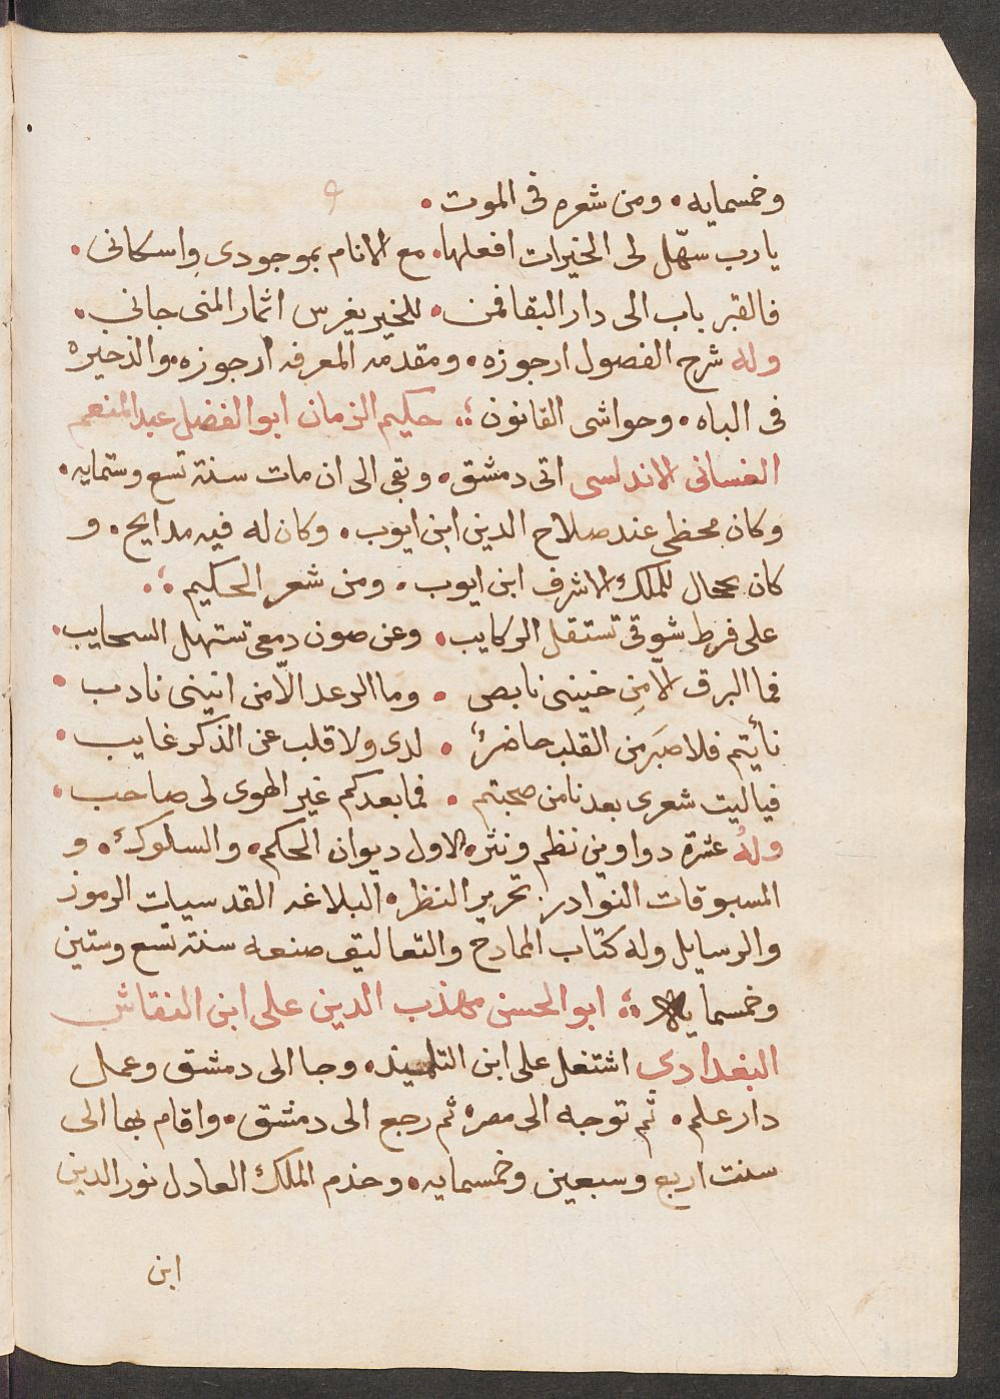 وخمسمايه • ومن شعره فى الموت •
يارب سهّل لى الخيرات افعلها • مع الانام بموجودى واسكانى •
فالقبر باب الى دار البقا فمن • للخير يغرس اثمار المنى جانى •
وله شرح الفصول ارجوزه • ومقدمه المعرفه ارجوزه • والذخيره
فى الباه • وحواشى القانون ؛ حكيم الزمان ابو الفضل عبد المنعم
الغسانى الاندلسى اتى دمشق • وبقى الى ان مات سنة تسع وستمايه •
وكان محظى عند صلاح الدين ابن ايوب • وكان له فيه مدايح • و
كان بحال للملك الاشرف ابن ايوب • ومن شعر الحكيم ؛
على فرط شوقى تستقل الركايب • وعن صون دمعى تستهل السحايب •
فما البرق الا من خنينى نابص • وما الرعد الّا من انينى نادب •
نأيتم فلا صبَر من القلب حاضرٌ • لدى ولا قلب عن الذكر غايب •
فياليت شعرى بعدنا من صحبتم • فما بعدكم غير الهوى لى صاحب •
ولهُ عشرة دواوين نظم ونثر • الاول ديوان الحكم • والسلوك • و
المسبوقات النوادر • تحرير النظر • البلاغه القدسيات الرموز
والرسايل وله كتاب المادح والتعاليق صنعه سنة تسع وستين
وخمسمايه ؛ ابو الحسن مهذب الدين على ابن النقاش
البغدادى اشتغل على ابن التلميذ • وجا الى دمشق وعمل
دار علم • ثم توجه الى مصر • ثم رجع الى دمشق • واقام بها الى
سنت اربع وسبعين وخمسمايه • وخدم الملك العادل نور الدين
ابن